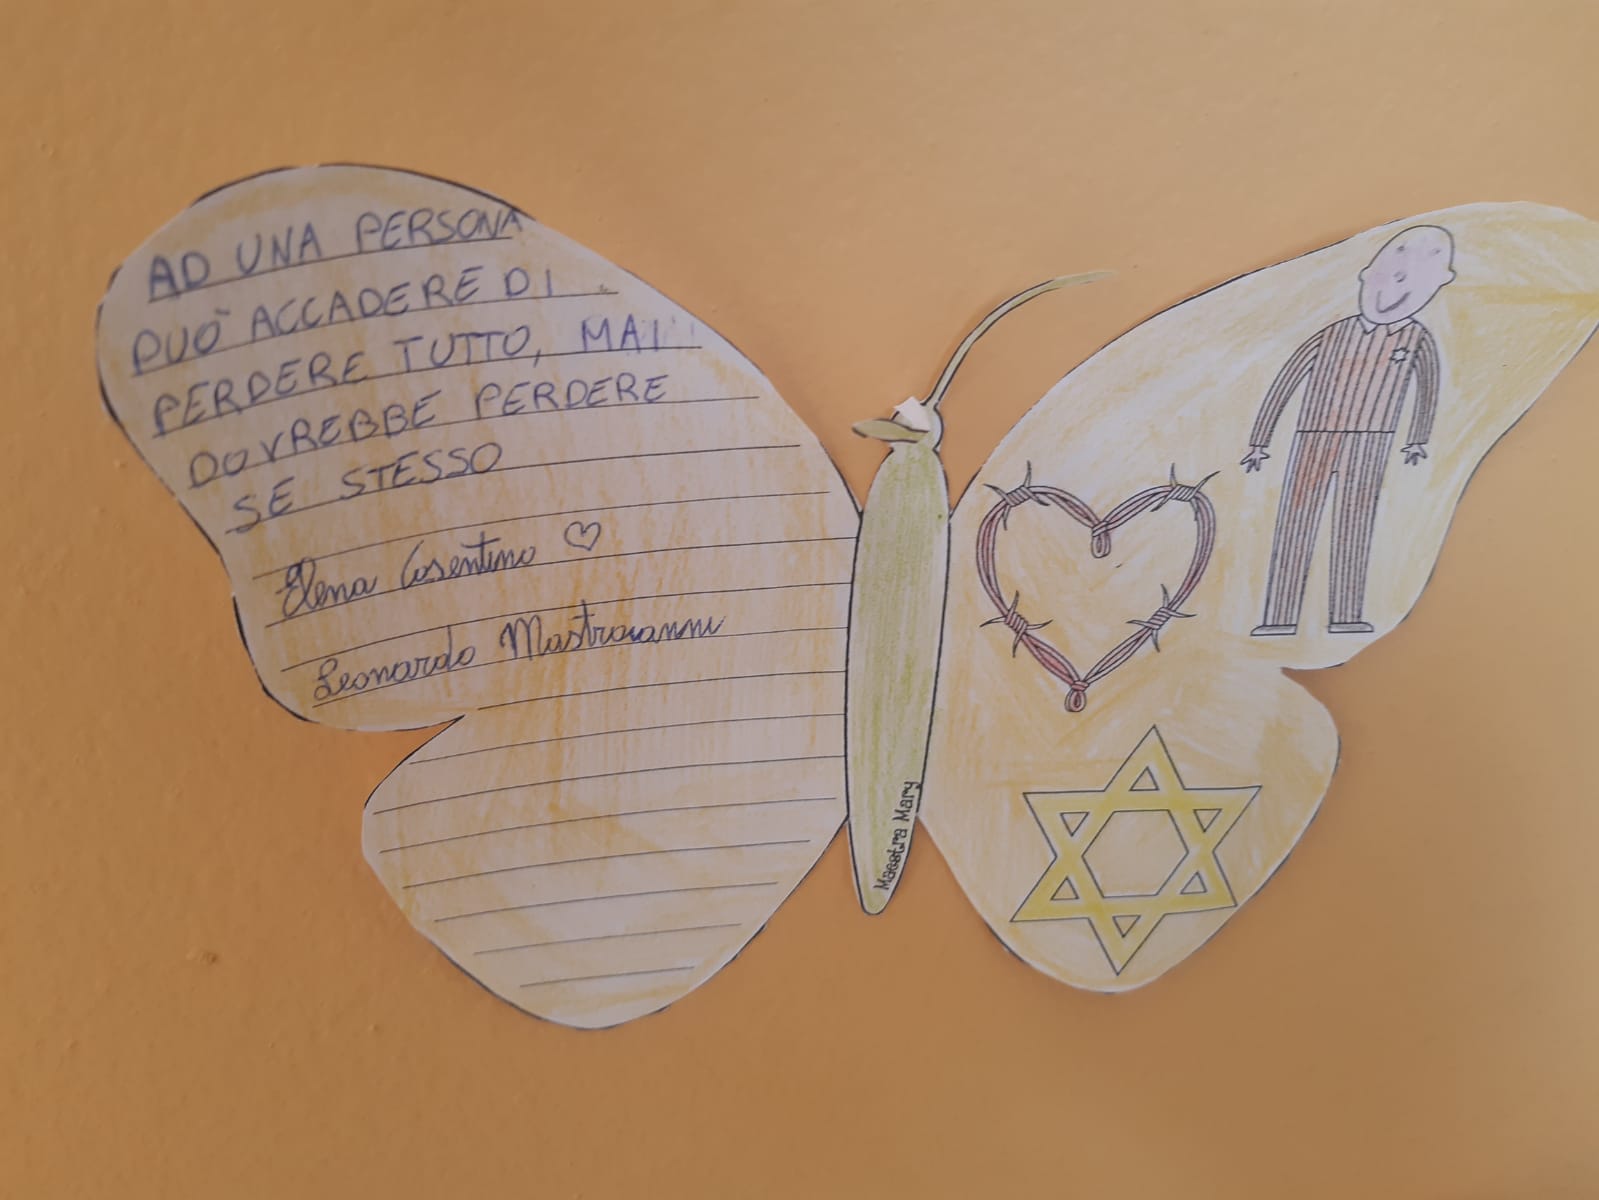 AD UNA PERSONA
PUÒ ACCADERE DI
PERDERE TUTTO, MAI
DOVREBBE PERDERE
SE STESSO
Elena Cosentino ♡
Leonardo Mastroianni
Maestra Mary